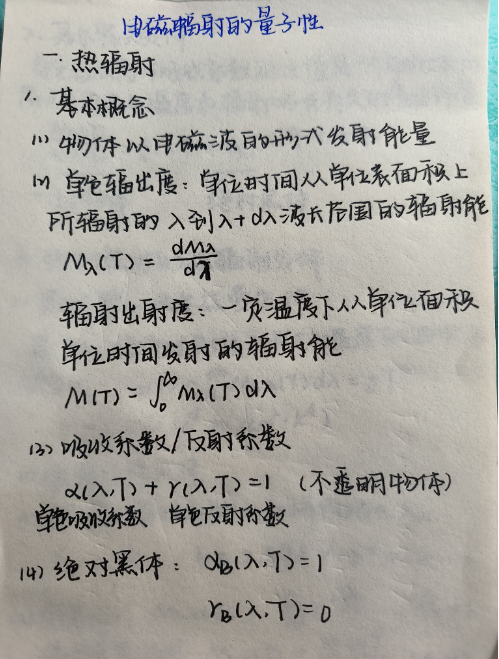 电磁辐射的量子性
一. 热辐射
1. 基本概念
(1) 物体以电磁波的形式发射能量
(2) 单色辐出度：单位时间从单位表面积上
所辐射的 λ到λ+dλ波长范围的辐射能
Mλ(T) = dMλ/dλ
辐射出射度：一定温度下从单位面积
单位时间发射的辐射能
M(T) = ∫₀^∞ Mλ(T) dλ
(3) 吸收系数/反射系数
α(λ,T) + r(λ,T) = 1 （不透明物体）
单色吸收系数 单色反射系数
(4) 绝对黑体： α_B(λ,T) = 1
r_B(λ,T) = 0